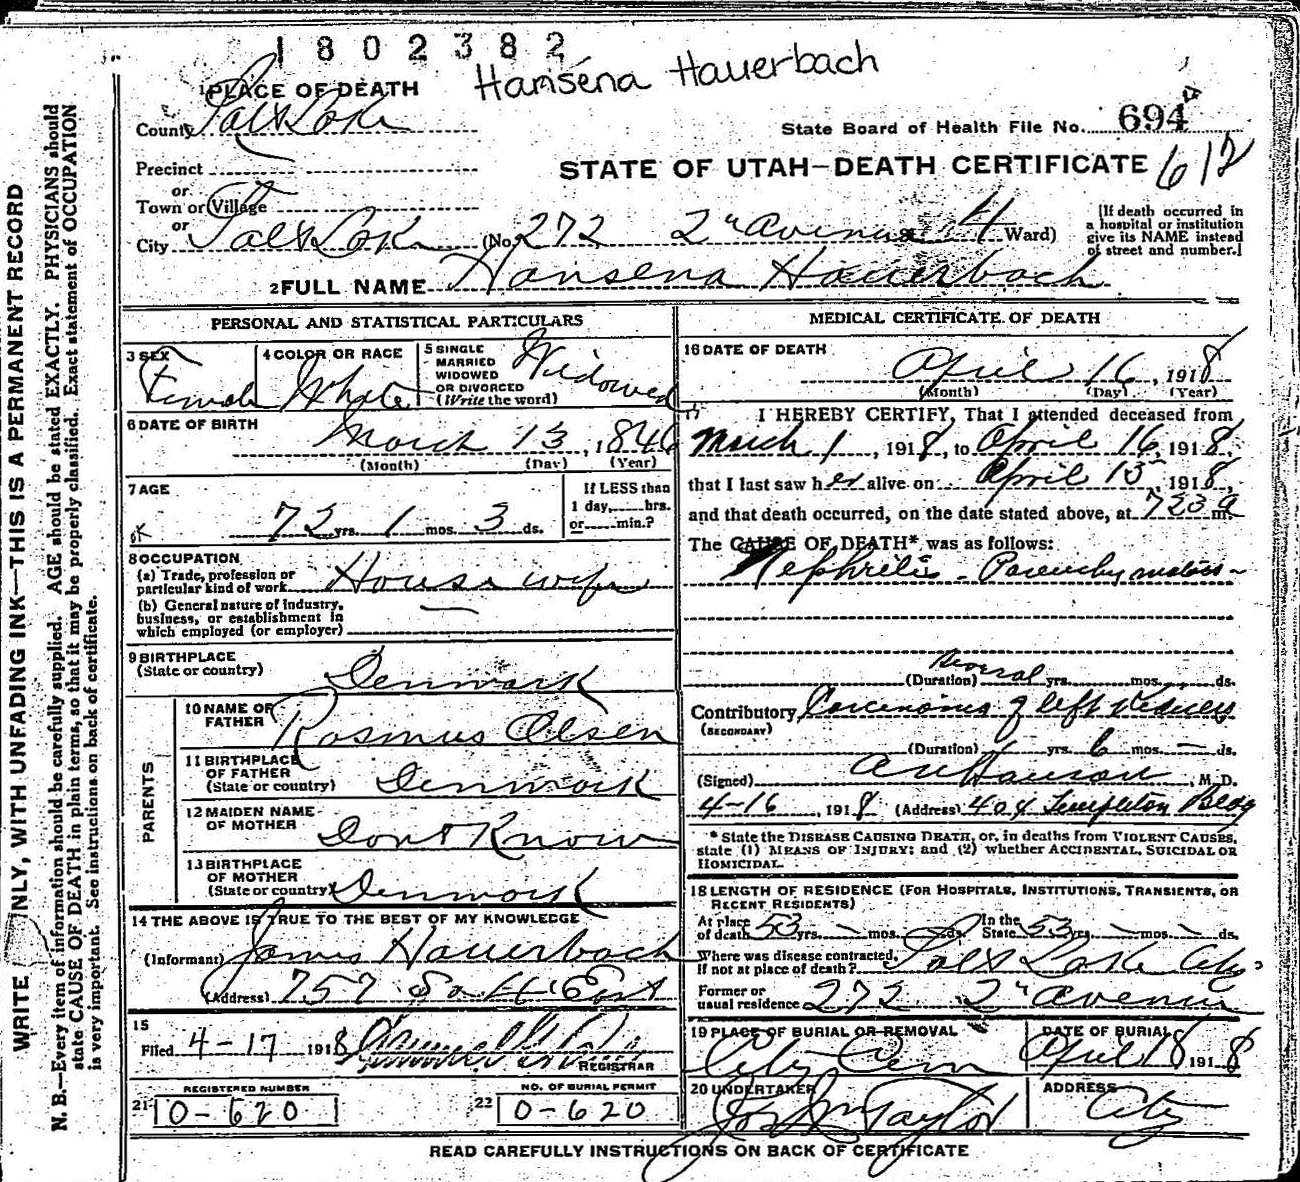 1802382
Hansena Hauerbach
1 PLACE OF DEATH
County Salt Lake
State Board of Health File No. 694
Precinct
STATE OF UTAH—DEATH CERTIFICATE 612
or
Town or Village
or
City Salt Lake (No. 272 2nd Avenue St. 4 Ward)
[If death occurred in
a hospital or institution
give its NAME instead
of street and number.]
2 FULL NAME Hansena Hauerbach
PERSONAL AND STATISTICAL PARTICULARS
3 SEX Female
4 COLOR OR RACE White
5 SINGLE
MARRIED
WIDOWED
OR DIVORCED
(Write the word) Widowed
6 DATE OF BIRTH March 13, 1846
(Month) (Day) (Year)
7 AGE 72 yrs. 1 mos. 3 ds.
If LESS than
1 day, hrs.
or min.?
8 OCCUPATION
(a) Trade, profession or
particular kind of work House wife
(b) General nature of industry,
business, or establishment in
which employed (or employer) —
9 BIRTHPLACE
(State or country) Denmark
PARENTS
10 NAME OF
FATHER Rasmus Olsen
11 BIRTHPLACE
OF FATHER
(State or country) Denmark
12 MAIDEN NAME
OF MOTHER Dont Know
13 BIRTHPLACE
OF MOTHER
(State or country) Denmark
14 THE ABOVE IS TRUE TO THE BEST OF MY KNOWLEDGE
(Informant) James Hauerbach
(Address) 757 So 4th East
15
Filed 4-17 1918
REGISTRAR
REGISTERED NUMBER
21 0-620
NO. OF BURIAL PERMIT
22 0-620
MEDICAL CERTIFICATE OF DEATH
16 DATE OF DEATH
April 16, 1918
(Month) (Day) (Year)
I HEREBY CERTIFY, That I attended deceased from
March 1, 1918, to April 16, 1918,
that I last saw her alive on April 15, 1918,
and that death occurred, on the date stated above, at 723 a m.
The CAUSE OF DEATH* was as follows:
Nephritis - Parenchymatous -
(Duration) several yrs. mos. ds.
Contributory Carcinoma of left Kidney
(SECONDARY)
(Duration) yrs. 6 mos. — ds.
(Signed) M. D.
4-16, 1918 (Address) 404 Templeton Bldg
* State the DISEASE CAUSING DEATH, or, in deaths from VIOLENT CAUSES,
state (1) MEANS OF INJURY; and (2) whether ACCIDENTAL, SUICIDAL OR
HOMICIDAL.
18 LENGTH OF RESIDENCE (FOR HOSPITALS, INSTITUTIONS, TRANSIENTS, OR
RECENT RESIDENTS)
At place
of death 53 yrs. — mos. — ds. In the
State 53 yrs. — mos. — ds.
Where was disease contracted,
If not at place of death? Salt Lake City
Former or
usual residence 272 2nd Avenue
19 PLACE OF BURIAL OR REMOVAL
City Cem
DATE OF BURIAL
April 18 1918
20 UNDERTAKER
Jos Wm Taylor
ADDRESS
City
READ CAREFULLY INSTRUCTIONS ON BACK OF CERTIFICATE
WRITE INLY, WITH UNFADING INK—THIS IS A PERMANENT RECORD
N. B.—Every item of information should be carefully supplied. AGE should be stated EXACTLY. PHYSICIANS should
state CAUSE OF DEATH in plain terms, so that it may be properly classified. Exact statement of OCCUPATION
is very important. See instructions on back of certificate.